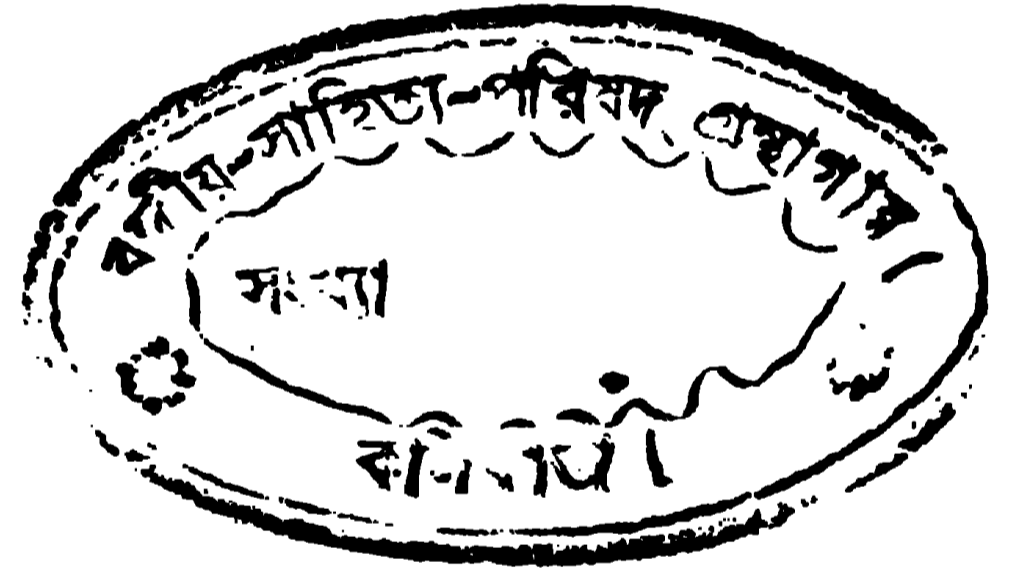 বঙ্গীয়-সাহিত্য-পরিষদ গ্রন্থাগার
সংখ্যা